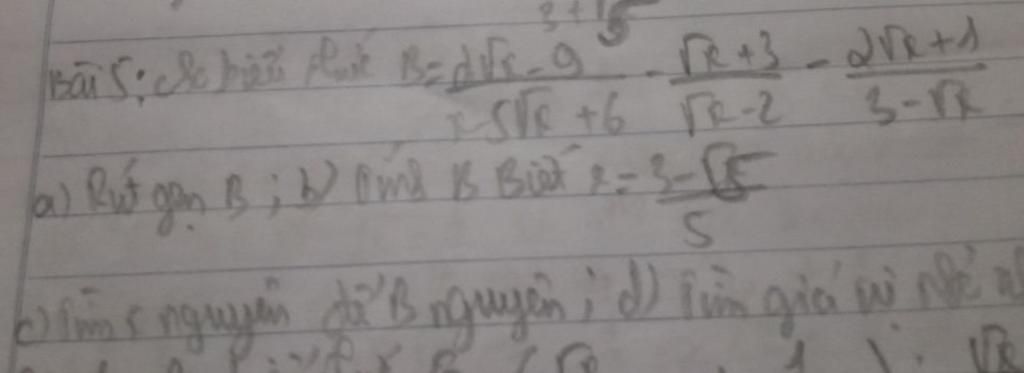 3+√5
Bài 5: Cho biểu thức B = (2√x - 9)/(x - 5√x + 6) - (√x + 3)/(√x - 2) - (2√x + 1)/(3 - √x)
a) Rút gọn B; b) Tính B Biết x = (3 - √5)/5
c) Tìm x nguyên để B nguyên; d) Tìm giá trị nhỏ